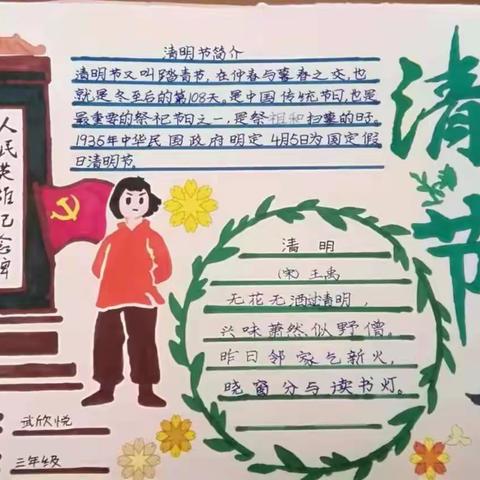 清明节简介
清明节又叫踏青节,在仲春与暮春之交,也
就是冬至后的第108天。是中国传统节日,也是
最重要的祭祀节日之一,是祭祖和扫墓的日子。
1935年中华民国政府明定4月5日为国定假
日清明节。
人民英雄纪念碑
清
节
清明
(宋)王禹
无花无酒过清明,
兴味萧然似野僧。
昨日邻家气新火,
晓窗分与读书灯。
武欣悦
三年级